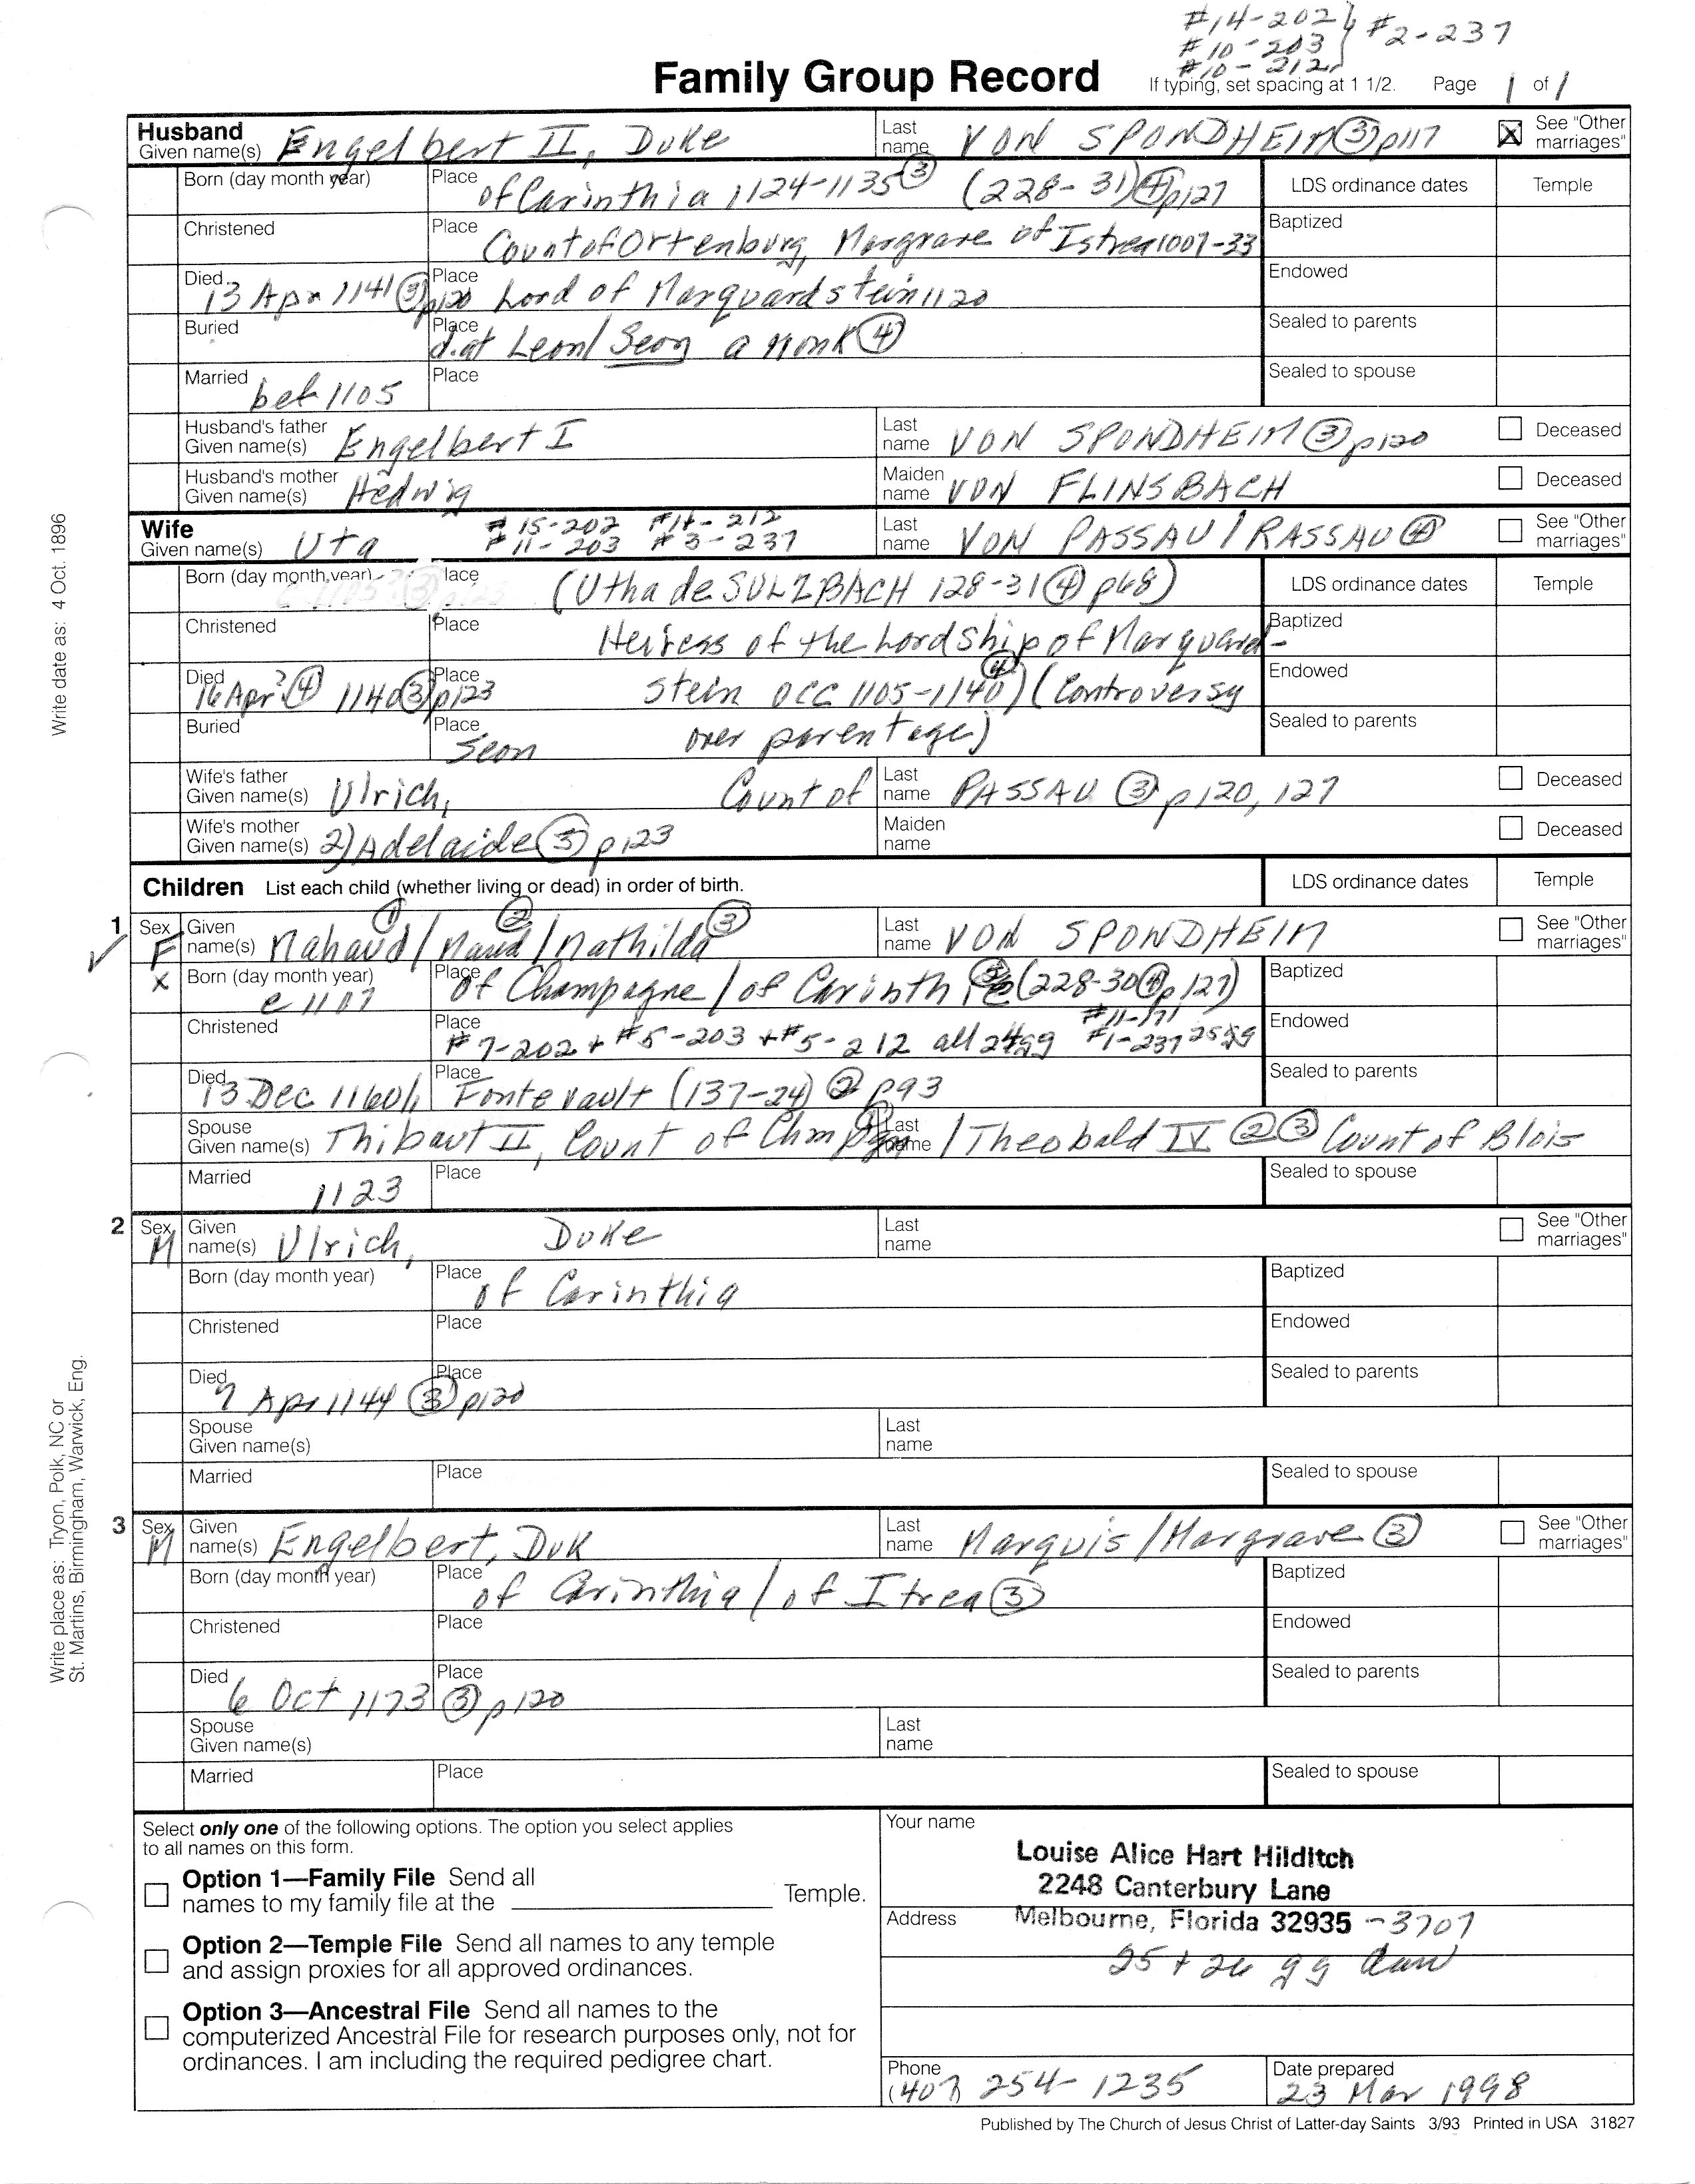 #14-202 } #2-237
#10-203
#10-212
Family Group Record If typing, set spacing at 1 1/2. Page 1 of 1
Husband
Given name(s) Engelbert II, Duke Last name VON SPONDHEIM ③ p117 X See "Other marriages"
Born (day month year) Place of Carinthia 1124-1135 ③ (228-31) ④ p127 LDS ordinance dates Temple
Christened Place Count of Ortenburg, Margrave of Istrea 1007-33 Baptized
Died 13 Apr 1141 ③ p120 Place Lord of Marquardstein 1120 Endowed
Buried Place d. at Leon/Seon a monk ④ Sealed to parents
Married bef 1105 Place Sealed to spouse
Husband's father Given name(s) Engelbert I Last name VON SPONDHEIM ③ p120 Deceased
Husband's mother Given name(s) Hedwig Maiden name VON FLINSBACH Deceased
Wife #15-202 #11-212
Given name(s) Uta #11-203 #3-237 Last name VON PASSAU/RASSAU ④ See "Other marriages"
Born (day month year) Place (Utha de SULZBACH 128-31 ④ p68) LDS ordinance dates Temple
Christened Place Heiress of the Lordship of Marquard- Baptized
Died 16 Apr? ④ 1140 ③ p123 Place stein occ 1105-1140 ④) (Controversy Endowed
Buried Place Seon over parentage) Sealed to parents
Wife's father Given name(s) Ulrich, Count of Last name PASSAU ③ p120, 127 Deceased
Wife's mother Given name(s) 2) Adelaide ③ p123 Maiden name Deceased
Children List each child (whether living or dead) in order of birth. LDS ordinance dates Temple
1 Sex F Given name(s) Mahaud ① / Maud ② / Mathilda ③ Last name VON SPONDHEIM See "Other marriages"
X Born (day month year) c 1107 Place of Champagne / of Carinthia ③ (228-30 ④ p127) Baptized
#11-171
Christened Place #7-202 + #5-203 + #5-212 all 24gg #1-237 25gg Endowed
Died 13 Dec 1160/1 Place Fontevault (137-24) ② p93 Sealed to parents
Spouse Given name(s) Thibaut II, Count of Chmpgn Last name / Theobald IV ② ③ Count of Blois
Married 1123 Place Sealed to spouse
2 Sex M Given name(s) Ulrich, Duke Last name See "Other marriages"
Born (day month year) Place of Carinthia Baptized
Christened Place Endowed
Died 7 Apr 1144 ③ p120 Place Sealed to parents
Spouse Given name(s) Last name
Married Place Sealed to spouse
3 Sex M Given name(s) Engelbert, Duk Last name Marquis/Margrave ③ See "Other marriages"
Born (day month year) Place of Carinthia / of Itrea ③ Baptized
Christened Place Endowed
Died 6 Oct 1173 ③ p120 Place Sealed to parents
Spouse Given name(s) Last name
Married Place Sealed to spouse
Select only one of the following options. The option you select applies
to all names on this form.
Option 1—Family File Send all
names to my family file at the Temple.
Option 2—Temple File Send all names to any temple
and assign proxies for all approved ordinances.
Option 3—Ancestral File Send all names to the
computerized Ancestral File for research purposes only, not for
ordinances. I am including the required pedigree chart.
Your name
Louise Alice Hart Hilditch
2248 Canterbury Lane
Address Melbourne, Florida 32935 -3707
25 + 26 gg dau
Phone (407) 254-1235
Date prepared 23 Mar 1998
Published by The Church of Jesus Christ of Latter-day Saints 3/93 Printed in USA 31827
Write date as: 4 Oct. 1896
Write place as: Tryon, Polk, NC or
St. Martins, Birmingham, Warwick, Eng.